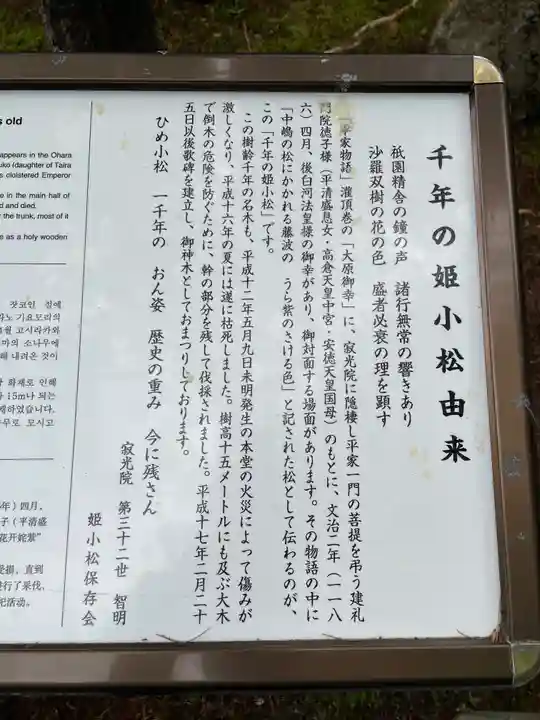 千年の姫小松由来
祇園精舎の鐘の声　諸行無常の響きあり
沙羅双樹の花の色　盛者必衰の理を顕す
「平家物語」灌頂巻の「大原御幸」に、寂光院に隠棲し平家一門の菩提を弔う建礼
門院徳子様（平清盛息女・高倉天皇中宮・安徳天皇国母）のもとに、文治二年（一一八
六）四月、後白河法皇様の御幸があり、御対面する場面があります。その物語の中に
「中嶋の松にかかれる藤波の　うら紫のさける色」と記された松として伝わるのが、
この「千年の姫小松」です。
この樹齢千年の名木も、平成十二年五月九日未明発生の本堂の火災によって傷みが
激しくなり、平成十六年の夏には遂に枯死しました。樹高十五メートルにも及ぶ大木
で倒木の危険を防ぐために、幹の部分を残して伐採されました。平成十七年二月二十
五日以後歌碑を建立し、御神木としておまつりしております。
ひめ小松　一千年の　おん姿　歴史の重み　今に残さん
寂光院　第三十二世　智明
姫小松保存会
s old
appears in the Ohara
uko (daughter of Taira
s cloistered Emperor
e in the main hall of
d and died.
the trunk, most of it
e as a holy wooden
잣코인 절에
라노 기요모리의
월 고시라카와
마의 소나무에
해 내려온 것이
화재로 인해
15m나 되는
제하였습니다.
무로 모시고
6年）四月，
子（平清盛
花开姹紫"
受损，直到
进行了采伐，
祀活动。